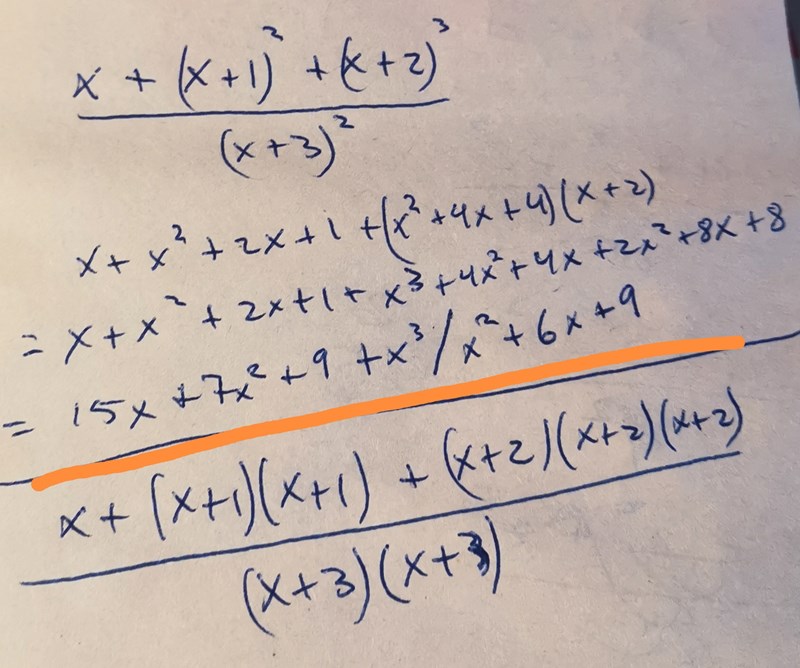 x + (x+1)² + (x+2)³
(x+3)²
x + x² + 2x + 1 + (x² + 4x + 4)(x+2)
= x + x² + 2x + 1 + x³ + 4x² + 4x + 2x² + 8x + 8
= 15x + 7x² + 9 + x³ / x² + 6x + 9
x + (x+1)(x+1) + (x+2)(x+2)(x+2)
(x+3)(x+3)